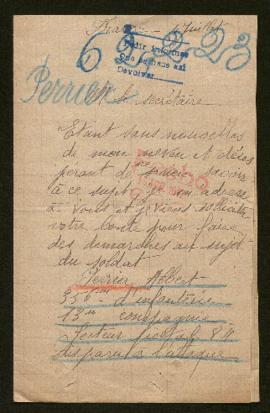 Juillet
652223
Pedir informe
Que se haga así
Devolver
Perrier
Mr le secrétaire.
Etant sans nouvelles
de mon neveu et déses
pérant de savoir
à ce sujet je m'adresse
à vous et je viens solliciter
votre bonté pour faire
des démarches au sujet
du soldat
Perrier Albert
356me d'infanterie
13me compagnie
Secteur postal 84
disparu à